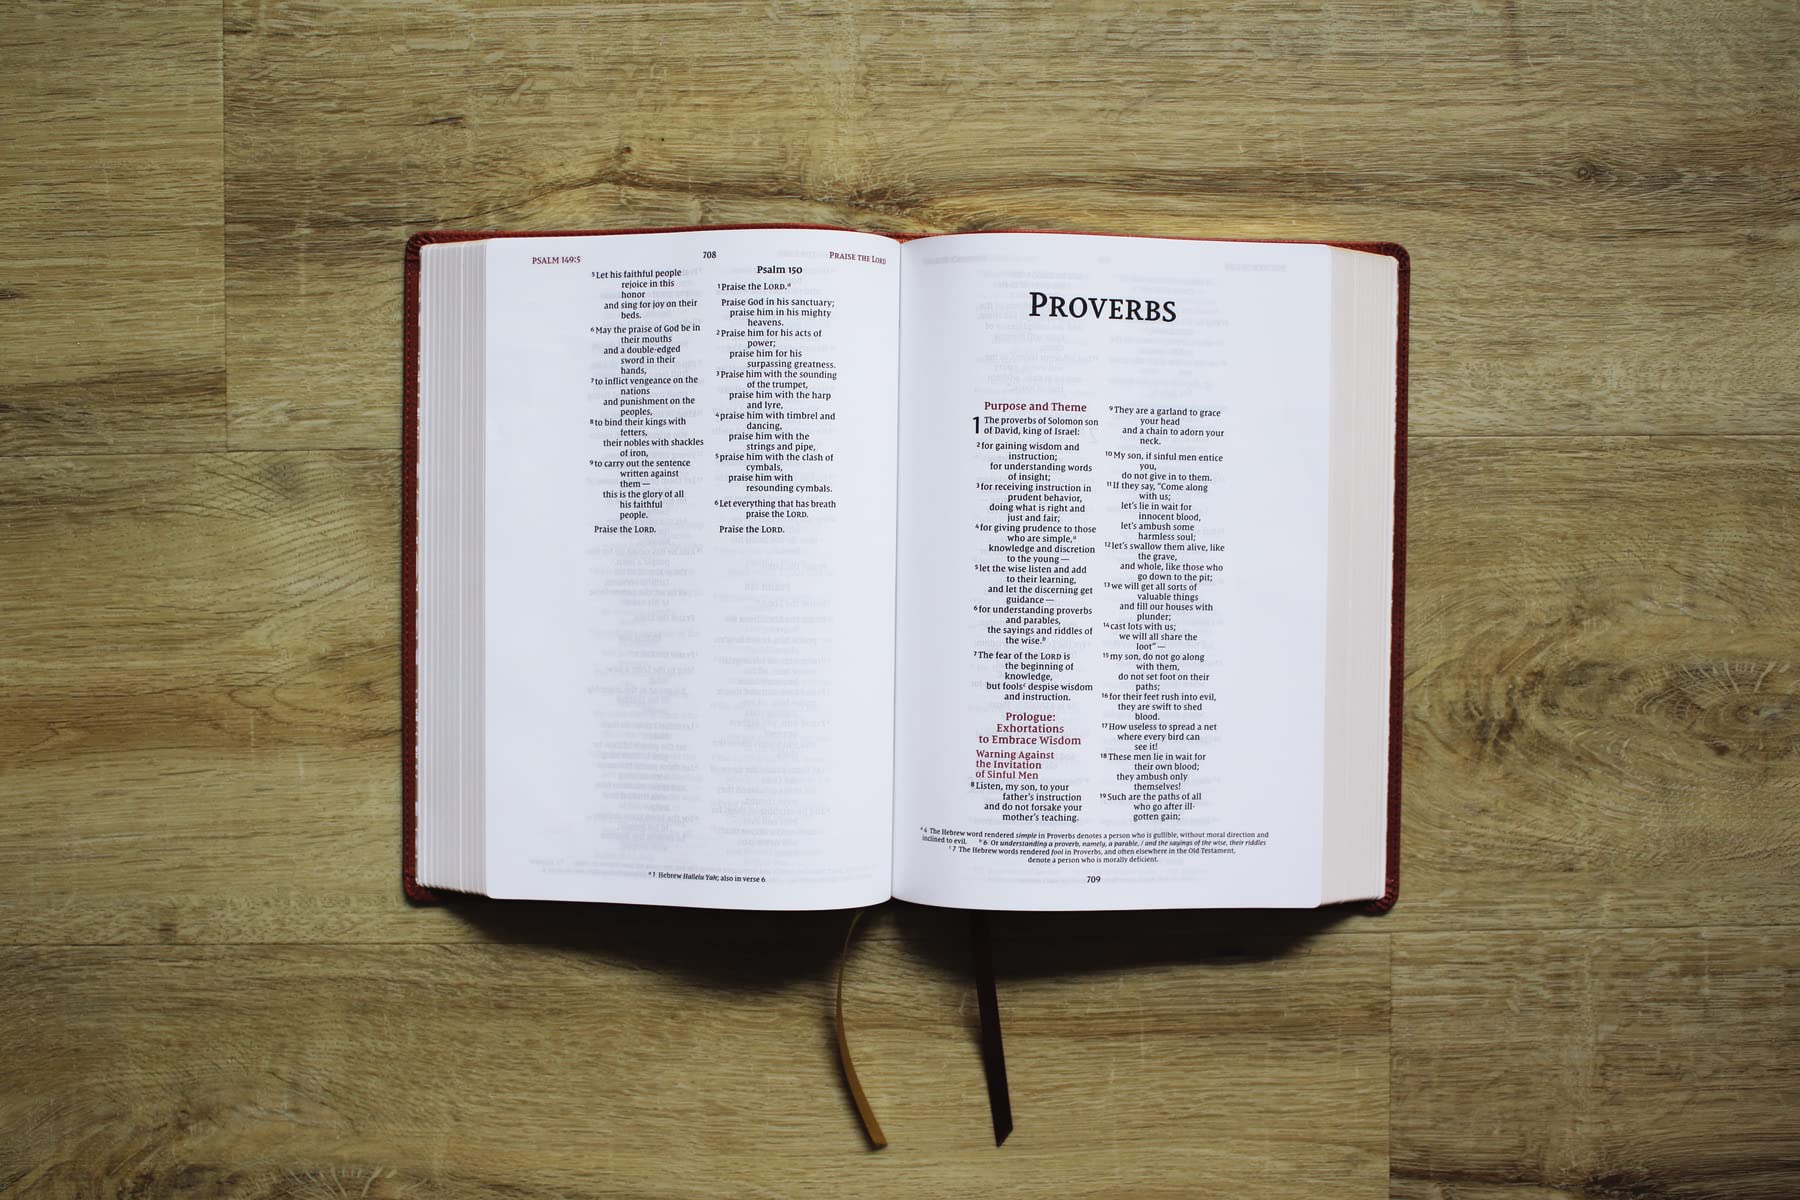 PSALM 149:5
708
PRAISE THE LORD
5 Let his faithful people
rejoice in this
honor
and sing for joy on their
beds.
6 May the praise of God be in
their mouths
and a double-edged
sword in their
hands,
7 to inflict vengeance on the
nations
and punishment on the
peoples,
8 to bind their kings with
fetters,
their nobles with shackles
of iron,
9 to carry out the sentence
written against
them—
this is the glory of all
his faithful
people.
Praise the LORD.
Psalm 150
1 Praise the LORD.a
Praise God in his sanctuary;
praise him in his mighty
heavens.
2 Praise him for his acts of
power;
praise him for his
surpassing greatness.
3 Praise him with the sounding
of the trumpet,
praise him with the harp
and lyre,
4 praise him with timbrel and
dancing,
praise him with the
strings and pipe,
5 praise him with the clash of
cymbals,
praise him with
resounding cymbals.
6 Let everything that has breath
praise the LORD.
Praise the LORD.
a 1 Hebrew Hallelu Yah; also in verse 6
PROVERBS
Purpose and Theme
1 The proverbs of Solomon son
of David, king of Israel:
2 for gaining wisdom and
instruction;
for understanding words
of insight;
3 for receiving instruction in
prudent behavior,
doing what is right and
just and fair;
4 for giving prudence to those
who are simple,a
knowledge and discretion
to the young—
5 let the wise listen and add
to their learning,
and let the discerning get
guidance—
6 for understanding proverbs
and parables,
the sayings and riddles of
the wise.b
7 The fear of the LORD is
the beginning of
knowledge,
but foolsc despise wisdom
and instruction.
Prologue:
Exhortations
to Embrace Wisdom
Warning Against
the Invitation
of Sinful Men
8 Listen, my son, to your
father's instruction
and do not forsake your
mother's teaching.
9 They are a garland to grace
your head
and a chain to adorn your
neck.
10 My son, if sinful men entice
you,
do not give in to them.
11 If they say, "Come along
with us;
let's lie in wait for
innocent blood,
let's ambush some
harmless soul;
12 let's swallow them alive, like
the grave,
and whole, like those who
go down to the pit;
13 we will get all sorts of
valuable things
and fill our houses with
plunder;
14 cast lots with us;
we will all share the
loot"—
15 my son, do not go along
with them,
do not set foot on their
paths;
16 for their feet rush into evil,
they are swift to shed
blood.
17 How useless to spread a net
where every bird can
see it!
18 These men lie in wait for
their own blood;
they ambush only
themselves!
19 Such are the paths of all
who go after ill-
gotten gain;
a 4 The Hebrew word rendered simple in Proverbs denotes a person who is gullible, without moral direction and
inclined to evil. b 6 Or understanding a proverb, namely, a parable, / and the sayings of the wise, their riddles
c 7 The Hebrew words rendered fool in Proverbs, and often elsewhere in the Old Testament,
denote a person who is morally deficient.
709